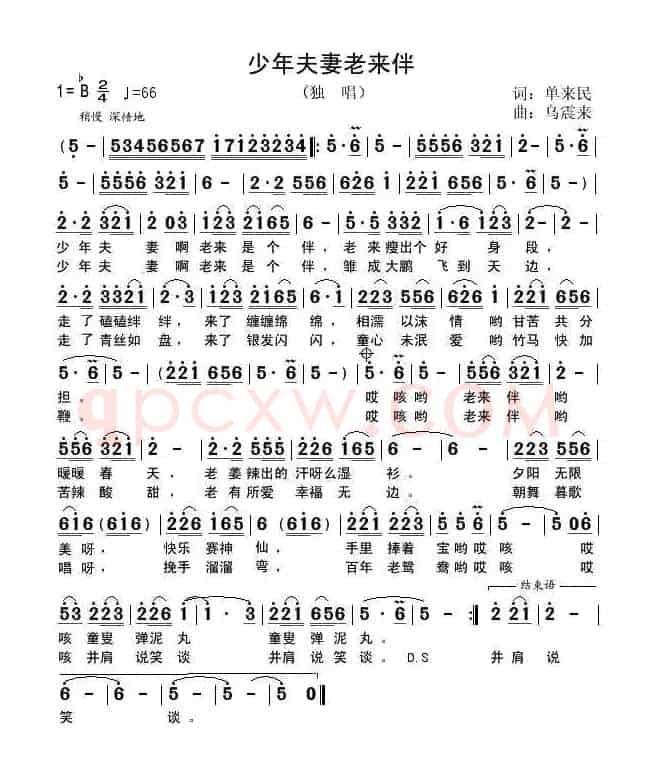 少年夫妻老来伴
1=♭B 2/4 ♩=66
（独 唱）
词：单来民
曲：乌震来
稍慢 深情地
( 5 - | 53456567 | 17123234 |: 5 · 6 | 5 - | 5556 321 | 2 - | 5 · 6 |
5 - | 5556 321 | 6 - | 2 · 2 556 | 626 1 | 221 656 | 5 · 6 | 5 - ) |
2 · 2 321 | 2 03 | 123 2165 | 6 - | 5 · 5 338 | 1 · 6 123 | 2 - |
少年夫 妻 啊 老来 是 个 伴， 老 来 瘦出个 好 身 段，
少年夫 妻 啊 老来 是 个 伴， 雏 成 大鹏 飞 到 天 边，
2 · 2 3321 | 2 · 3 | 123 2165 | 6 · 1 | 223 556 | 626 1 | 221 656 |
走了 磕磕绊 绊， 来了 缠缠绵 绵， 相濡 以沫 情 哟 甘苦 共分
走了 青丝如 盘， 来了 银发闪 闪， 童心 未泯 爱 哟 竹马 快加
5 · 6 | 5 - | (221 656 | 5 · 6 | 5 - ) | 5 · 6 | 5 5 · 6 |
担。 哎 咳 哟 老 来 伴 哟
鞭。
qpcxw.COM
556 321 | 2 - | 2 · 2 555 | 226 165 | 6 - | 6 6 | 556 321 |
暖暖 春 天， 老 姜 辣出的 汗呀么湿 衫。 夕阳 无限
苦辣 酸 甜， 老 有 所爱 幸福 无 边。 朝舞 暮歌
616 (616) | 226 165 | 616 (616) | 221 223 | 5 5 6 | 5 06 |
美 呀， 快乐 赛神 仙， 手里 捧着 宝 哟 哎 咳 哎
唱 呀， 挽手 溜溜 弯， 百年 老鸳 鸯 哟 哎 咳 哎
结束语
53 223 | 226 1 | 1 · 3 | 221 656 | 5 · 6 | 5 - :| 2 221 | 2 - |
咳 童叟 弹泥 丸 童叟 弹泥 丸。
咳 并肩 说笑 谈 并肩 说笑 谈。 D.S 并肩 说
6 - | 6 - | 5 - | 5 - | 5 0 ‖
笑 谈。